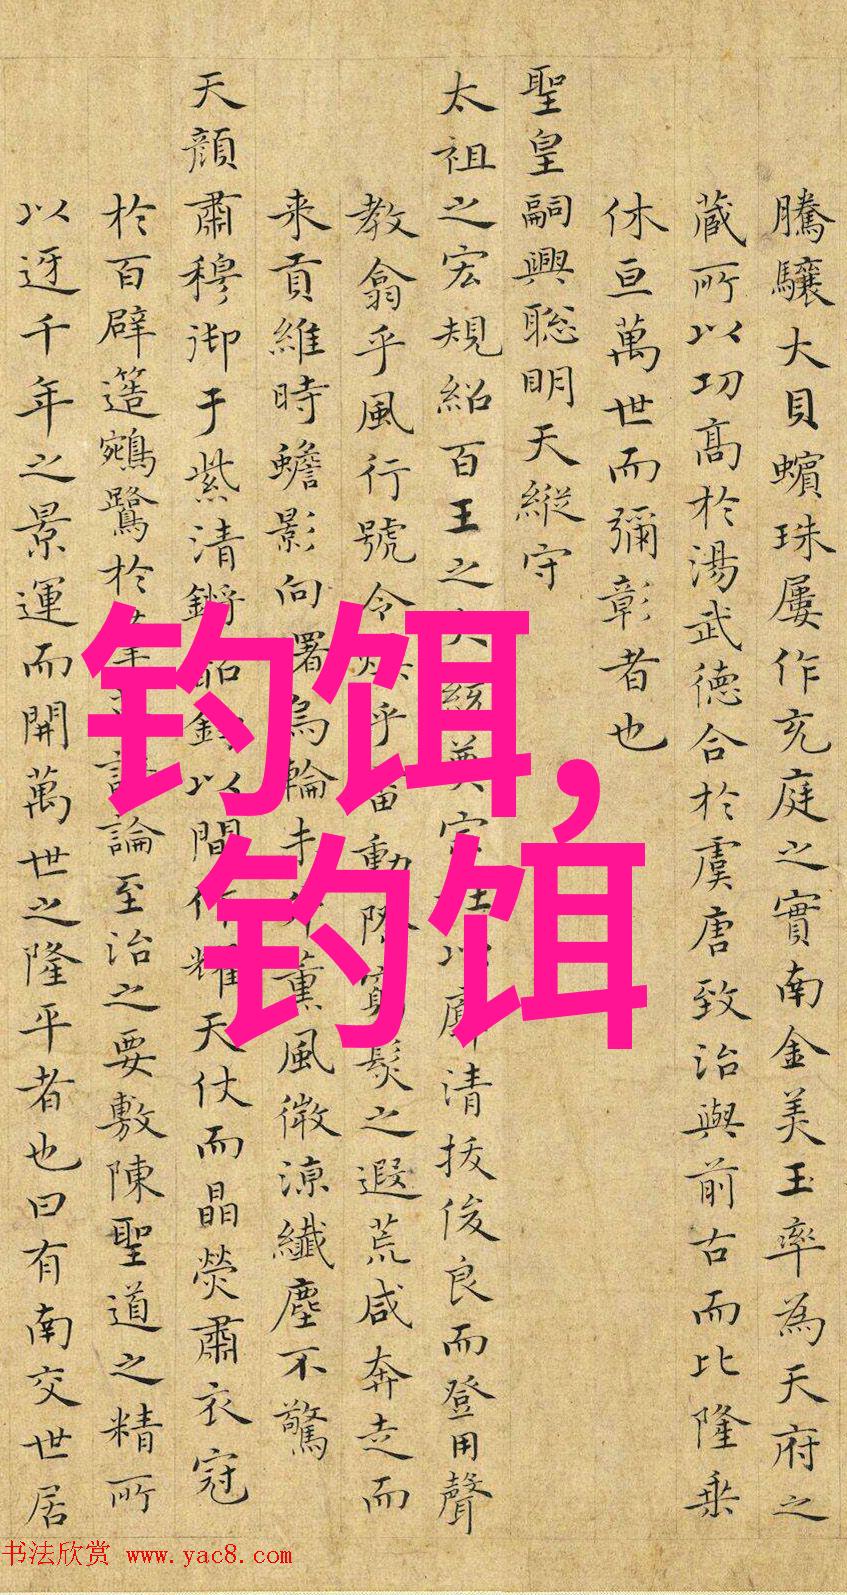 騰驤大貝蠙珠屢作充庭之實南金美玉率為天府之
藏所以功高於湯武德合於虞唐致治與前古而比隆乗
休亘萬世而彌彰者也
聖皇嗣興聡明天縦守
太祖之宏規紹百王之大統英宗以廓清拔俊良而登用聲
教翕乎風行號令乎雷動際之遐荒咸奔走而
来貢維時蟾影向署烏輪薰風微凉纎塵不驚
天顔肅穆御于紫清以間作耀天仗而晶熒肅衣冠
於百辟簉鵷鷺於論至治之要敷陳聖道之精所
以迓千年之景運而開萬世之隆平者也曰有南交世居
钓饵,
钓饵
书法欣赏 www.yac8.com